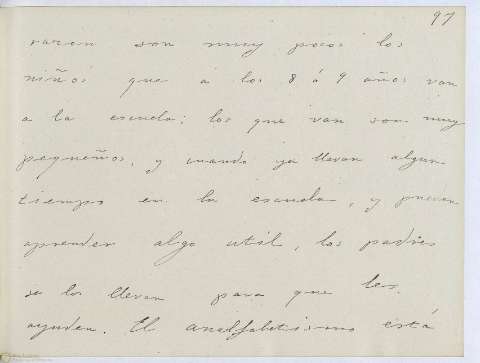 97
varon son muy pocos los
niños que á los 8 á 9 años van
a la escuela; los que van son muy
pequeños, y cuando ya llevan algun
tiempo en la escuela, y pueden
aprender algo util, los padres
se los llevan para que les
ayuden. El analfabetismo está